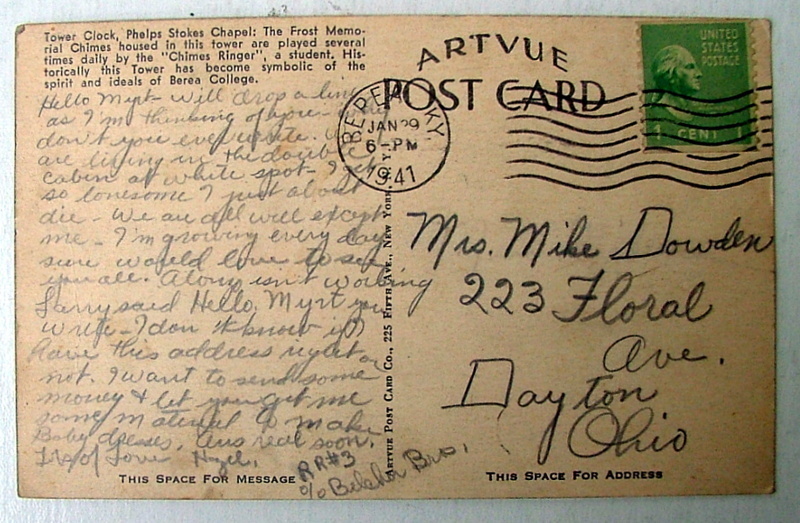 Tower Clock, Phelps Stokes Chapel: The Frost Memo-
rial Chimes housed in this tower are played several
times daily by the "Chimes Ringer", a student. His-
torically this Tower has become symbolic of the
spirit and ideals of Berea College.
Hello Myrt- Will drop a line
as I'm thinking of you-
don't you ever write. We
are living in the double
cabin at White spot- I get
so lonesome I just about
die- We are all well except
me- I'm growing every day
sure would love to see
you all. isn't working
Larry said Hello, Myrt you
write- I don't know if I
have this address right or
not. I want to send some
money & let you get me
some material to make
Baby dresses, Ans real soon.
Lts of Love Hazel,
RR#3
c/o Belcher Bros.
THIS SPACE FOR MESSAGE
ARTVUE POST CARD Co., 225 FIFTH AVE., NEW YORK, N.Y.
ARTVUE
POST CARD
BEREA KY.
JAN 29
6-PM
1941
UNITED
STATES
POSTAGE
1 CENT 1
Mrs. Mike Dowden
223 Floral
Ave.
Dayton
Ohio
THIS SPACE FOR ADDRESS